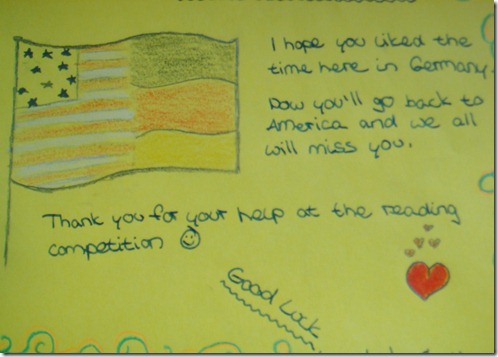 I hope you liked the
time here in Germany.
Now you'll go back to
America and we all
will miss you.
Thank you for your help at the reading
competition ☺
Good Luck